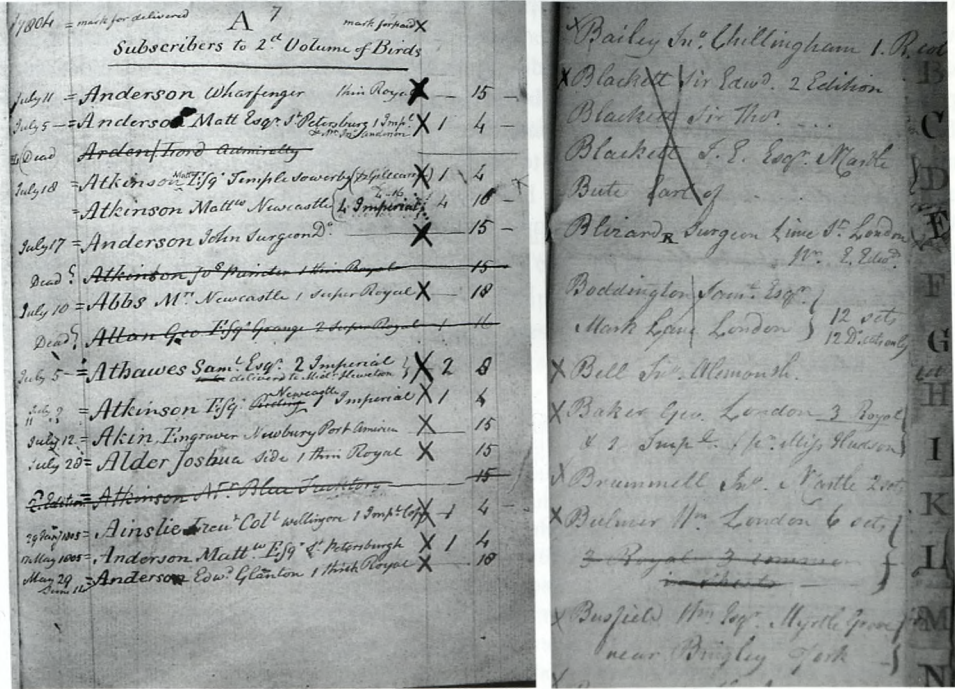 1804 = mark for delivered A 7 mark for paid X
Subscribers to 2d Volume of Birds
July 11 = Anderson Wharfinger thin Royal X 15 –
July 5 – = Anderson Matt Esqr St Petersburg 1 Impl X 1 4 –
Dead Arden Lord Admiralty
July 18 = Atkinson Matt Esqr Temple Sowerby X 1 4
= Atkinson Mattw Newcastle 4 Imperial 4 16 –
July 17 = Anderson John Surgeon Do X 15 –
Dead? Atkinson Jos Painter 1 thin Royal 15
July 10 = Abbs Mrs Newcastle 1 super Royal X 18
Dead? Allan Geo Esqr Grange 2 super Royal 1 16
July 5 = Athawes Saml Esqr 2 Imperial X 2 8
delivered to
Newcastle
= Atkinson Esqr Imperial X 1 4
July 12 = Akin Engraver Newbury Port America X 15
July 20 = Alder Joshua Side 1 thin Royal X 15
2d Edition = Atkinson Mr Blue 15
1805 = Ainslie Colt 1 Impl X 1 4
May 1805 = Anderson Mattw Esqr St Petersburgh X 1 4
May 29 = Anderson Edwd Glanton 1 thick Royal X 18
X Bailey Jno Chillingham 1. R.
B
X Blackett Sir Edwd. 2 Edition
Blackett Sir Tho. C
Blackett J. E. Esqr. D
Bute Earl of
Blizard R Surgeon Lime St London E
F
Boddington Saml Esqr.
Mark Lane London 12 sets
12 G
X Bell Jno Alemouth.
H
X Baker Geo. London 3 Royal
& 2 Impl. Miss Hudson I
X Brummell 2
K
X Bulmer Wm London 6 sets
3 Royal 3 common L
X Busfield Wm Esqr. Myrtle Grove M
near Bingley York
N